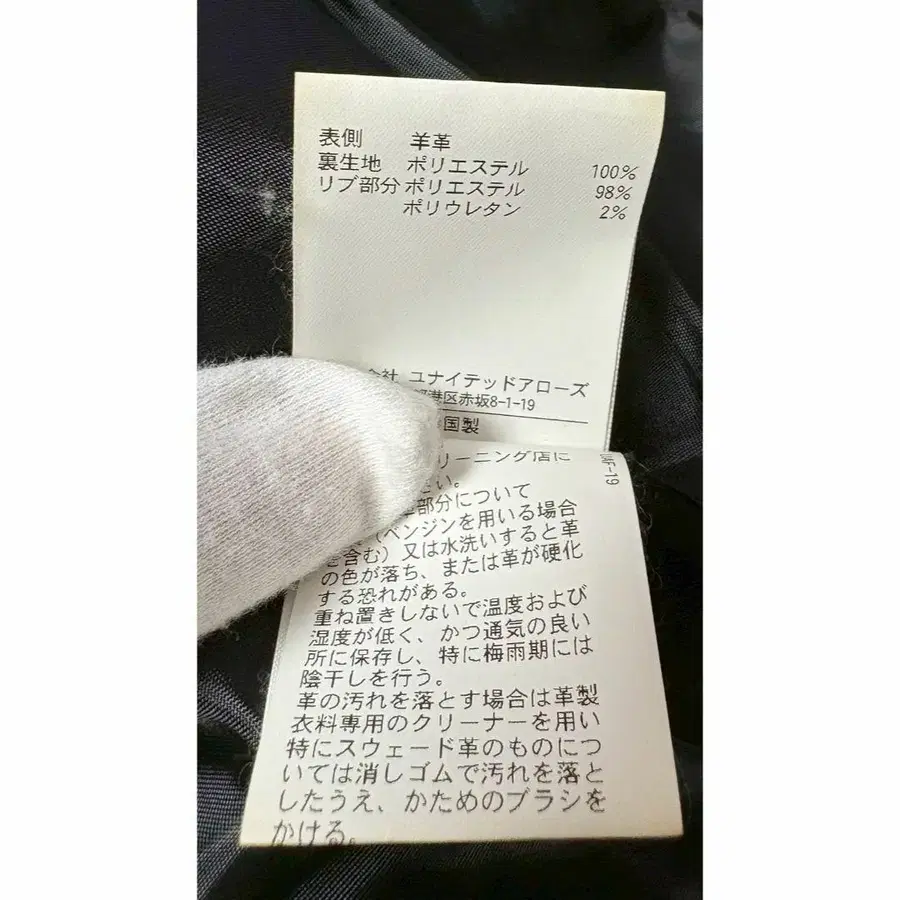 表側 羊革
裏生地 ポリエステル 100%
リブ部分 ポリエステル 98%
ポリウレタン 2%
会社 ユナイテッドアローズ
港区赤坂8-1-19
国製
リーニング店に
さい。
部分について
(ベンジンを用いる場合
を含む)又は水洗いすると革
の色が落ち、または革が硬化
する恐れがある。
重ね置きしないで温度および
湿度が低く、かつ通気の良い
所に保存し、特に梅雨期には
陰干しを行う。
革の汚れを落とす場合は革製
衣料専用のクリーナーを用い
特にスウェード革のものにつ
いては消しゴムで汚れを落と
したうえ、かためのブラシを
かける。
UAF-19